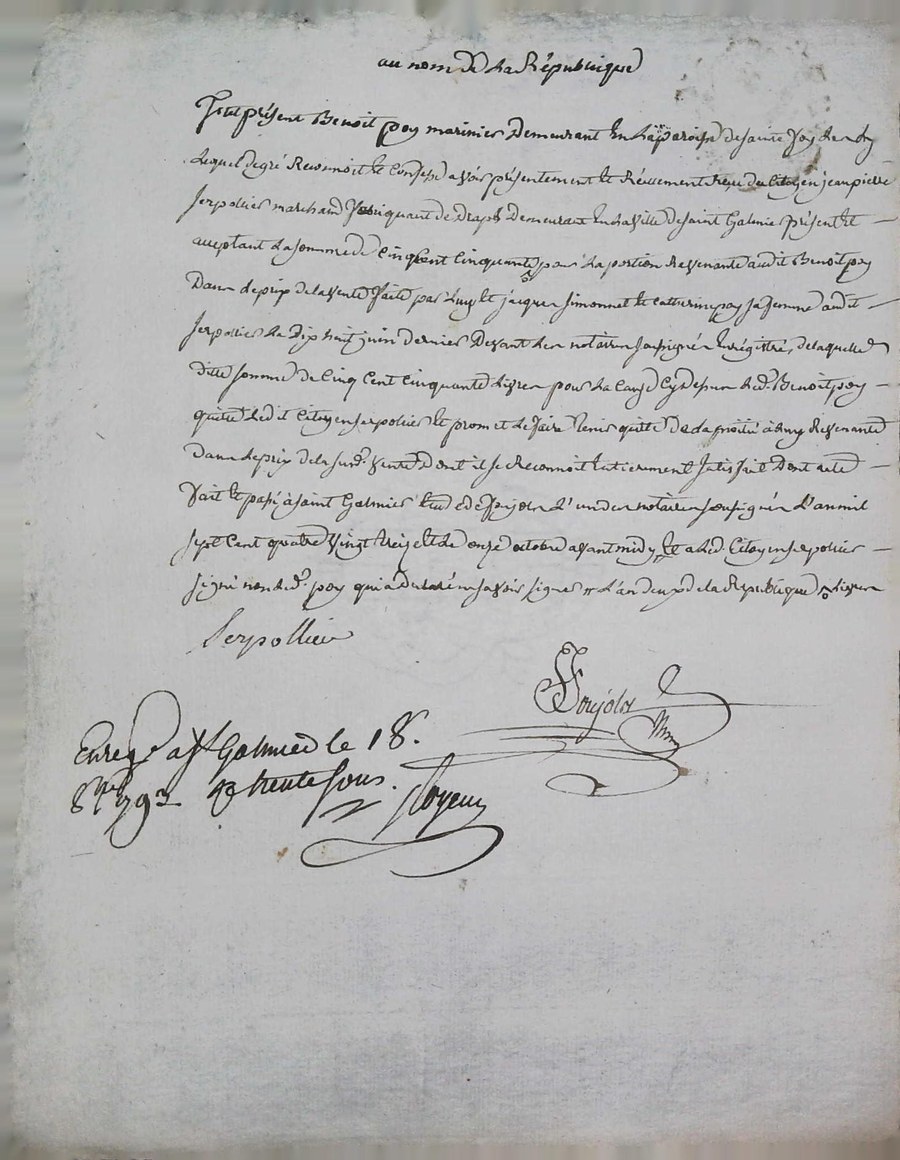 au nom de La République
fut présent Benoit poy marinier Demeurant En La paroisse de saint
Lequel de gré Reconnoit et Confesse avoir présentement et Réellement Reçu du Citoyen jean pierre
serpollier marchand fabriquant de draps Demeurant En La ville de saint Galmier présent et
acceptant La somme de Cinq Cent Cinquante pour La portion Revenante audit Benoit poy
Dans le prix de la vente faite par Luy et jacques simonnet et Catherine poy sa femme audit
serpollier Le Dix huit juin dernier Devant Les notaires soussignés Enrégistré, de laquelle
ditte somme de Cinq Cent Cinquante Livres pour La Cause Cy dessus Led. Benoit poy
quitte Ledit Citoyen serpollier et promet Le faire tenir quitte De La moitié à Luy Revenante
dans Le prix de la susd. vente Dont il se Reconnoit Entierement satisfait Dont acte
fait et passé à saint Galmier Etude de Poujols L'un des notaires soussignés L'an mil
sept Cent quatre vingt treize et Le onze octobre avant midy, Et a Led. Citoyen serpollier
signé non Led. poy qui a déclaré ne savoir signer L'an deux de la République Livres
Serpollier
Poujols
Enreg. a St Galmier le 18.
8bre 1793 R trente sous.